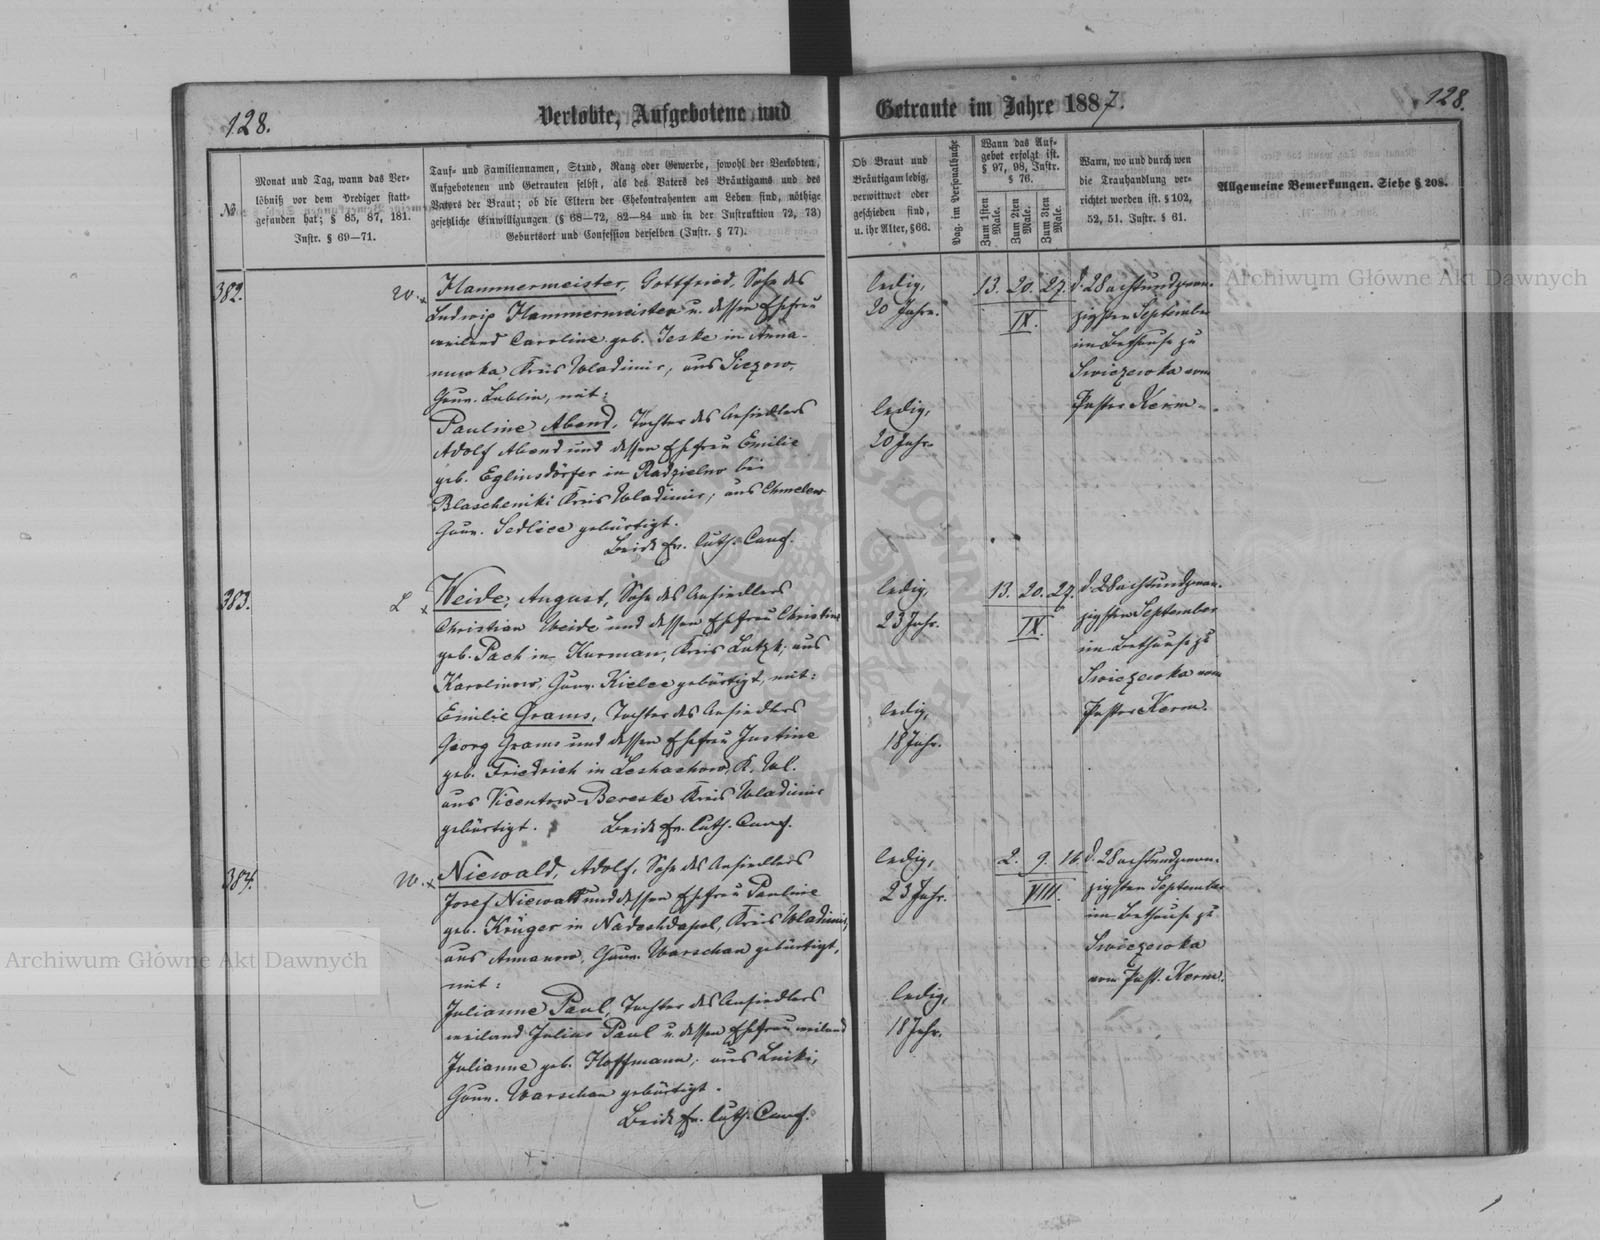 128.
Verlobte, Aufgebotene und
Getraute im Jahre 1887.
128.
№
Monat und Tag, wann das Ver-
löbniß vor dem Prediger statt-
gefunden hat; § 85, 87, 181.
Instr. § 69—71.
Tauf- und Familiennamen, Stand, Rang oder Gewerbe, sowohl der Verlobten,
Aufgebotenen und Getrauten selbst, als des Vaters des Bräutigams und des
Vaters der Braut; ob die Eltern der Ehekontrahenten am Leben sind, nöthige
gesetzliche Einwilligungen (§ 68—72, 82—84 und in der Instruktion 72, 73)
Geburtsort und Confession derselben (Instr. § 77).
Ob Braut und
Bräutigam ledig,
verwittwet oder
geschieden sind,
u. ihr Alter, § 66.
Pag. im Personalbuche
Wann das Auf-
gebot erfolgt ist.
§ 97, 98, Instr.
§ 76.
Zum 1sten
Male.
Zum 2ten
Male.
Zum 3ten
Male.
Wann, wo und durch wen
die Trauhandlung ver-
richtet worden ist. § 102,
52, 51. Instr. § 61.
Allgemeine Bemerkungen. Siehe § 208.
382.
W. x
Hammermeister, Gottfried, Sohn des
Ludwig Hammermeister u. dessen Ehefrau
weiland Caroline geb. Jeske in Anna-
nuwka Kreis Wladimir, aus Siczow,
Gouv. Lublin, mit:
Pauline Abend, Tochter des Ansiedlers
Adolf Abend und dessen Ehefrau Emilie
geb. Eglinsdörfer in Radzielno bei
Blascheniki Kreis Wladimir, aus Chmelow
Gouv. Sedlice gebürtigt.
Beide ev. luth. Conf.
ledig,
20 Jahre.
ledig,
20 Jahr.
13. 20. 27.
IX.
d. 28 achtundzwan-
zigsten September
im Bethause zu
Swiczewka vom
Pastor Kerm.
383.
L x
Weide, August, Sohn des Ansiedlers
Christian Weide und dessen Ehefrau Christine
geb. Pach in Kurman, Kreis Lutzk, aus
Karolinow, Gouv. Kielce gebürtigt, mit:
Emilie Grams, Tochter des Ansiedlers
Georg Grams und dessen Ehefrau Justine
geb. Friedrich in Leshachow, K. Wl.
aus Vicentow-Bereske Kreis Wladimir
gebürtigt. Beide ev. luth. Conf.
ledig,
23 Jahr.
ledig,
18 Jahr.
13. 20. 27.
IX.
d. 28 achtundzwan-
zigsten September
im Bethause zu
Swiczewka vom
Pastor Kerm.
384.
W. x
Niewald, Adolf, Sohn des Ansiedlers
Josef Niewald und dessen Ehefrau Pauline
geb. Krüger in Nadeshdapol, Kreis Wladimir,
aus Annanow, Gouv. Warschau gebürtigt,
mit:
Julianne Paul, Tochter des Ansiedlers
weiland Julius Paul u. dessen Ehefrau weiland
Julianne geb. Hoffmann, aus Laski,
Gouv. Warschau gebürtigt.
Beide ev. luth. Conf.
ledig,
23 Jahr.
ledig,
18 Jahr.
2. 9. 16.
VIII.
d. 28 achtundzwan-
zigsten September
im Bethause zu
Swiczewka
vom Past. Kerm.
Archiwum Główne Akt Dawnych
Archiwum Główne Akt Dawnych